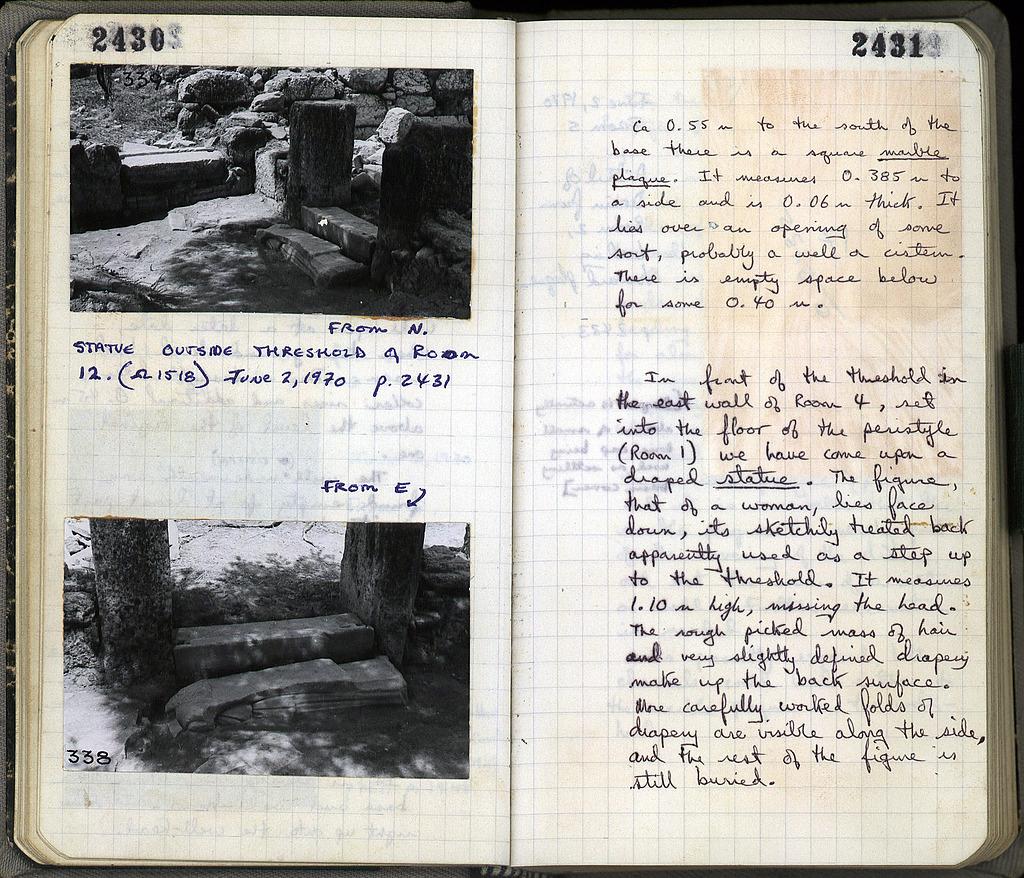 2430
339
FROM N.
STATUE OUTSIDE THRESHOLD of ROOM
12. (Ω 1518) JUNE 2, 1970 p. 2431
FROM E
338
2431
Ca 0.55 m to the south of the
base there is a square marble
plaque. It measures 0.385 m to
a side and is 0.06 m thick. It
lies over an opening of some
sort, probably a well or cistern.
There is empty space below
for some 0.40 m.
In front of the threshold in
the east wall of Room 4, set
into the floor of the peristyle
(Room 1) we have come upon a
draped statue. The figure,
that of a woman, lies face
down, its sketchily treated back
apparently used as a step up
to the threshold. It measures
1.10 m high, missing the head.
The rough picked mass of hair
and very slightly defined drapery
make up the back surface.
More carefully worked folds of
drapery are visible along the side,
and the rest of the figure is
still buried.